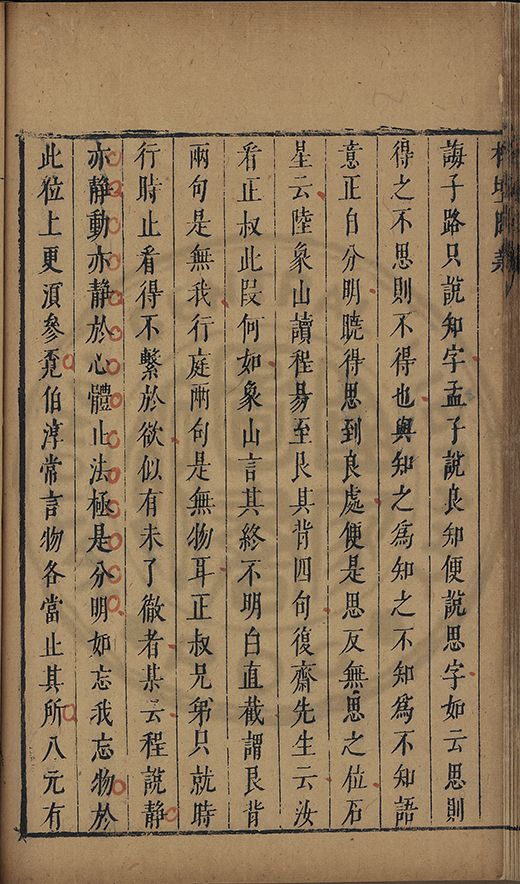 誨子路只說知字孟子說良知便說思字如云思則
得之不思則不得也與知之為知之不知為不知語
意正自分明曉得思到良處便是思反無思之位石
星云陸象山讀程易至艮其背四句復齋先生云汝
看正叔此段何如象山言其終不明白直截謂艮背
兩句是無我行庭兩句是無物耳正叔兄弟只就時
行時止看得不繫於欲似有未了徹者某云程說靜
亦靜動亦靜於心體止法極是分明如忘我忘物於
此位上更須參覔伯淳常言物各當止其所八元有